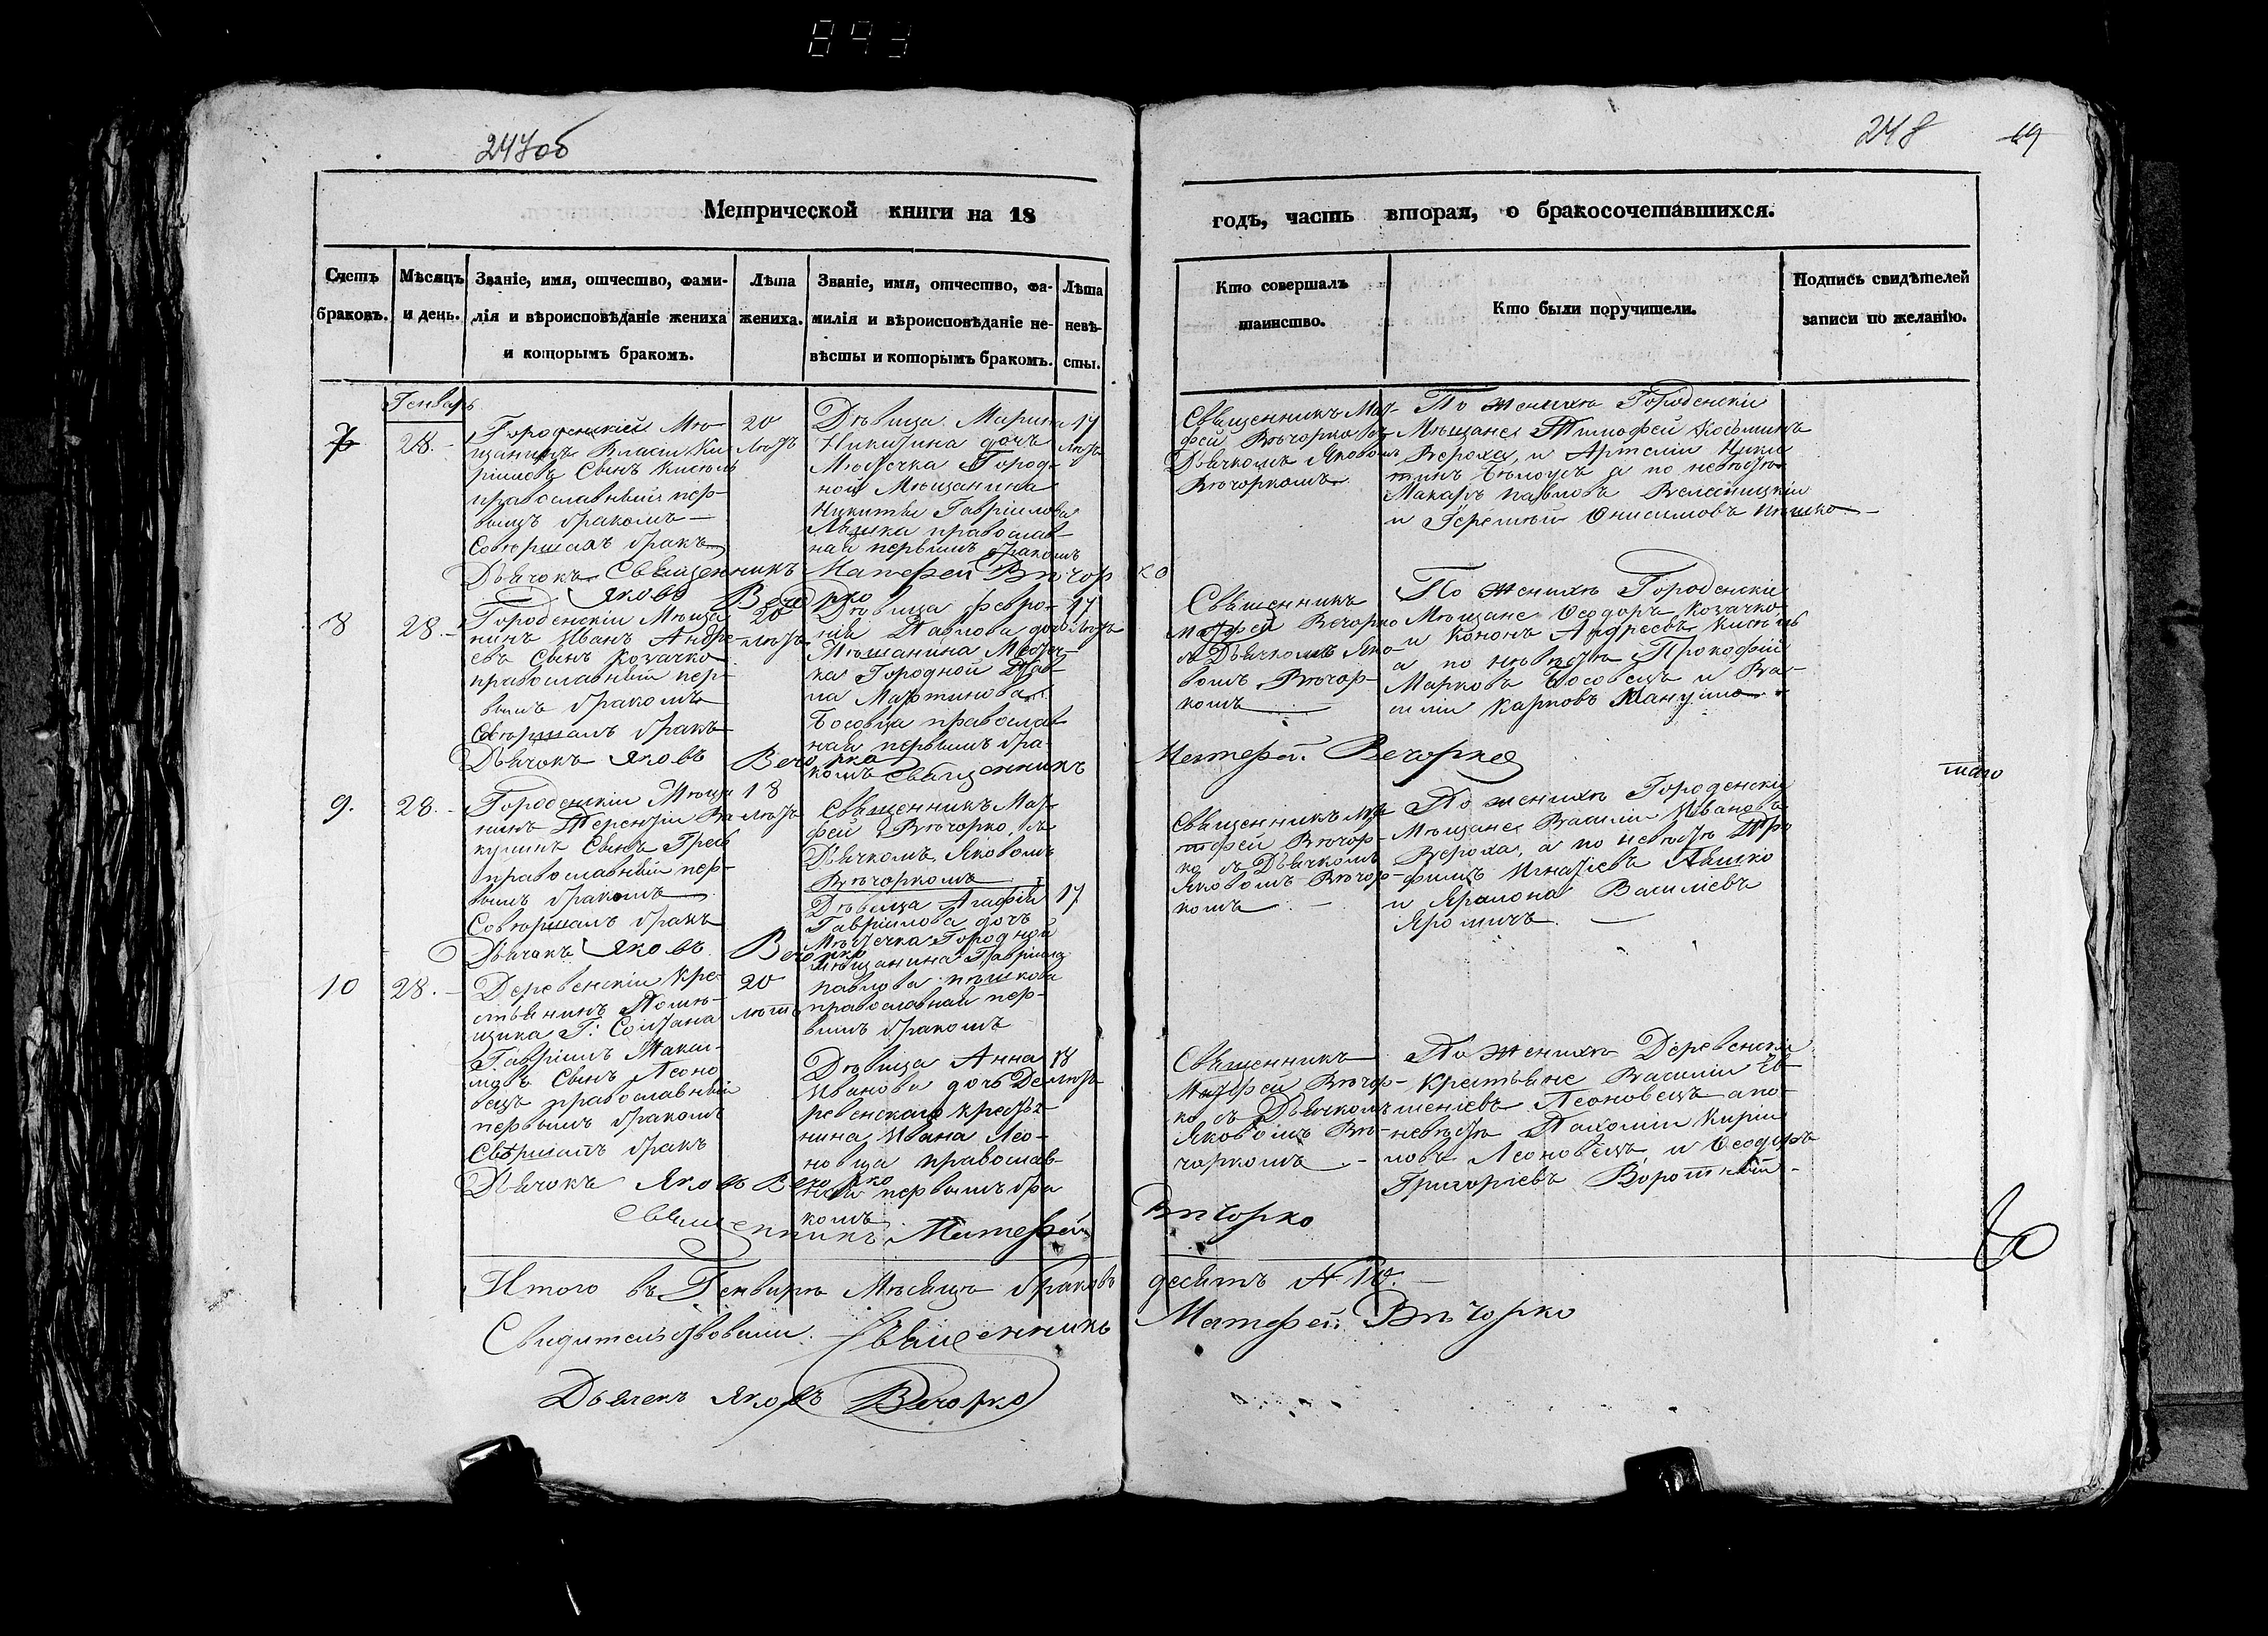 893
247об
248
19
Метрической книги на 18
годъ, часть вторая, о бракосочетавшихся.
Счетъ браковъ.
Мѣсяцъ и день.
Званіе, имя, отчество, фами-
лія и вѣроисповѣданіе жениха
и которымъ бракомъ.
Лѣта
жениха.
Званіе, имя, отчество, фа-
милія и вѣроисповѣданіе не-
вѣсты и которымъ бракомъ.
Лѣта
невѣ-
сты.
Кто совершалъ
таинство.
Кто были поручители.
Подпись свидѣтелей
записи по желанію.
Генварь
7
28.
Городенскій Мѣ-
щанинъ Власій Ки
риловъ Сынъ Кисѣль
православный пер-
вымъ бракомъ
Совершалъ бракъ
20
лѣтъ
Дѣвица Марина
Никитина дочь
Мѣстечка Город-
ной Мѣщанина
Никиты Гавріилова
православ-
ная первымъ бракомъ
17
лѣтъ
Священникъ Мат-
фей Вѣчорко съ
Дьячкомъ Яковомъ
Вѣчоркомъ
По женихѣ Городенскіи
Мѣщане Тимофей Косьминъ
Вероха, и Артемій Ники
тинъ а по невѣстѣ
Макаръ Павловъ
и Іеремѣй Онисимовъ
Священникъ Матфей Вѣчорко
Дьячокъ Яковъ Вечорко
8
28.
Городенскій Мѣща
нинъ Иванъ Андре-
евъ Сынъ Козачко
православный пер-
вымъ бракомъ
Совершалъ бракъ
20
лѣтъ
Дѣвица Февро-
нія Павлова дочь
Мѣщанина Мѣстеч-
ка Городной Пав-
ла Мартинова
Босовца православ
ная первымъ бра-
комъ
17
лѣтъ
Священникъ
Матфей Вечорко
съ Дьячкомъ Яко-
вомъ Вѣчор-
комъ
По женихѣ Городенскіи
Мѣщане Ѳеодоръ Козачко
и Кононъ Андреевъ Кисѣль
а по невѣстѣ Прокофій
Марковъ Босовецъ и Ва-
силій Карповъ
Дьячокъ Яковъ Вечорко
Священникъ Матфей Вечорко
9.
28.
Городенскій Мѣща
нинъ Терентій Ва
кулинъ Сынъ
православный пер-
вымъ бракомъ
Совершалъ бракъ
18
лѣтъ
Священникъ Мат-
фей Вѣчорко, съ
Дьячкомъ Яковомъ
Вѣчоркомъ
Дѣвица Агафія
Гавріилова дочь
Мѣстечка Городной
Мѣщанина Гавріила
Павлова Пѣшкова
православная пер-
вымъ бракомъ
17
Священникъ Ма
тфей Вѣчор-
ко съ Дьячкомъ
Яковомъ Вѣчор-
комъ
По женихѣ Городенскіи
Мѣщане Василій Ивановъ
Вероха, а по невѣстѣ Тро
фимъ Игнатіевъ Пѣшко
и Василіевъ
Яромичъ
Дьячокъ Яковъ Вечорко
10
28.
Деревенскій Кре-
стьянинъ Помѣ-
щика Г: Солтана
Гавріилъ Макси-
мовъ Сынъ Леоно
вецъ православный
первымъ бракомъ
Совершалъ бракъ
20
лѣтъ
Дѣвица Анна
Иванова дочь Де
ревенскаго крестья-
нина Ивана Лео-
новца православ-
ная первымъ бра
комъ
18
лѣтъ
Священникъ
Матфей Вѣчор-
ко съ Дьячкомъ
Яковомъ Вѣ-
чоркомъ
По женихѣ Деревенскіи
Крестьяне Василій Ев-
меніевъ Леоновецъ а по
невѣстѣ Пахомій Кирил
ловъ Леоновецъ, и Ѳеодоръ
Григоріевъ
Дьячокъ Яковъ Вечорко
Священникъ Матфей Вѣчорко
Итого въ Генварѣ Мѣсяцѣ браковъ десять № 10.
Свидительствовали Священникъ Матфей Вѣчорко
Дьячекъ Яковъ Вечорко